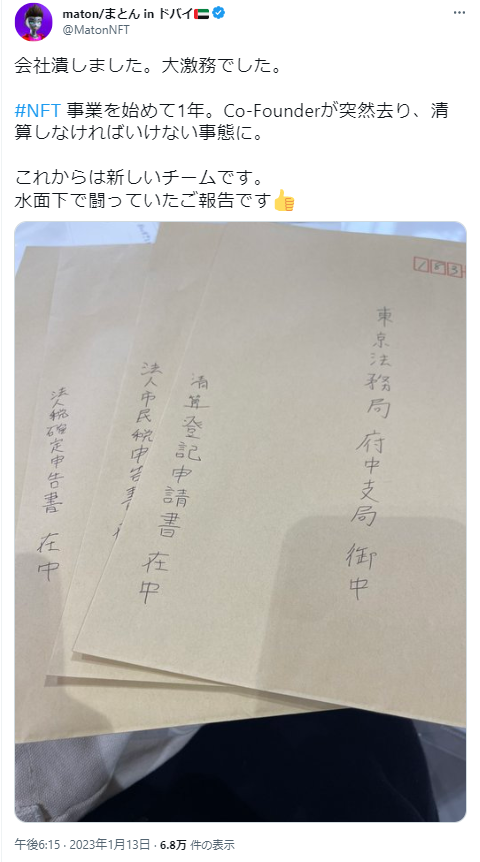 maton/まとん in ドバイ🇦🇪
@MatonNFT
会社潰しました。大激務でした。
#NFT 事業を始めて1年。Co-Founderが突然去り、清
算しなければいけない事態に。
これからは新しいチームです。
水面下で闘っていたご報告です👍
183
東京法務局 府中支局 御中
清算登記申請書 在中
法人市民税申告書
法人税確定申告書 在中
午後6:15 · 2023年1月13日 · 6.8万 件の表示